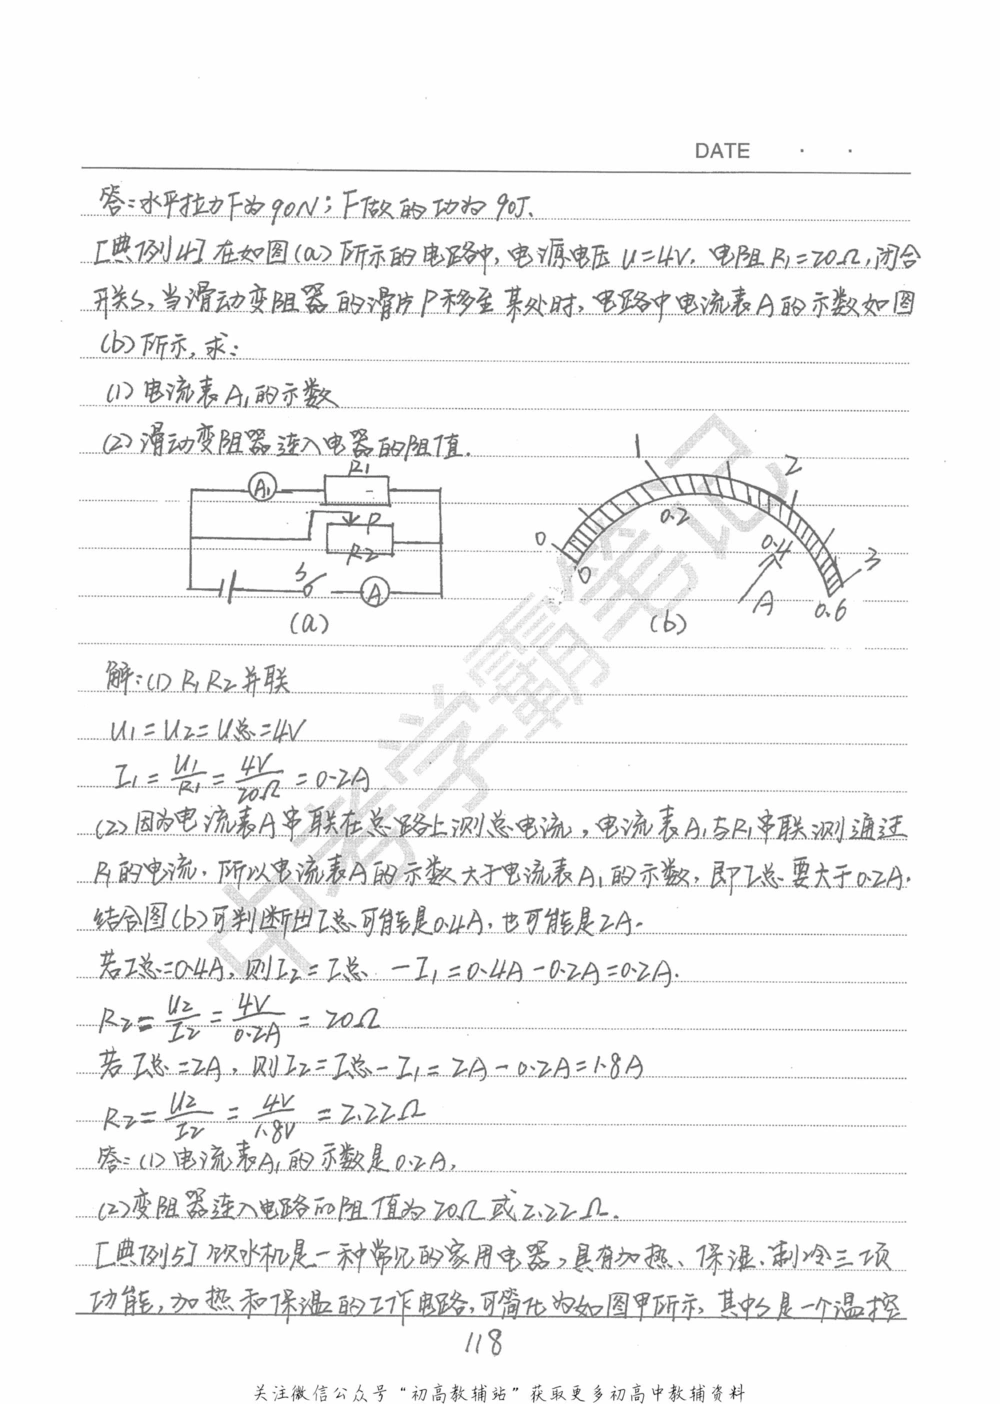 DATE · ·
答:水平拉力F为90N;F做的功为90J.
[典例4]在如图(a)所示的电路中,电源电压U=4V.电阻R1=20Ω,闭合
开关S,当滑动变阻器的滑片P移至某处时,电路中电流表A的示数如图
(b)所示,求:
(1)电流表A1的示数
(2)滑动变阻器连入电器的阻值.
A1 R1
P
R2
S
A
(a)
0 1 2 3
0 0.2 0.4 0.6
A
(b)
解:(1)R1R2并联
U1=U2=U总=4V
I1=U1/R1=4V/20Ω=0.2A
(2)因为电流表A串联在总路上测总电流,电流表A1与R1串联测通过
R1的电流.所以电流表A的示数大于电流表A1的示数,即I总要大于0.2A.
结合图(b)可判断出I总可能是0.4A,也可能是2A.
若I总=0.4A,则I2=I总-I1=0.4A-0.2A=0.2A.
R2=U2/I2=4V/0.2A=20Ω
若I总=2A,则I2=I总-I1=2A-0.2A=1.8A
R2=U2/I2=4V/1.8V=2.22Ω
答:(1)电流表A1的示数是0.2A,
(2)变阻器连入电路的阻值为20Ω或2.22Ω.
[典例5]饮水机是一种常见的家用电器,具有加热、保温、制冷三项
功能,加热和保温的工作电路,可简化为如图甲所示,其中S是一个温控
118
关注微信公众号“初高教辅站”获取更多初高中教辅资料
中考学霸笔记